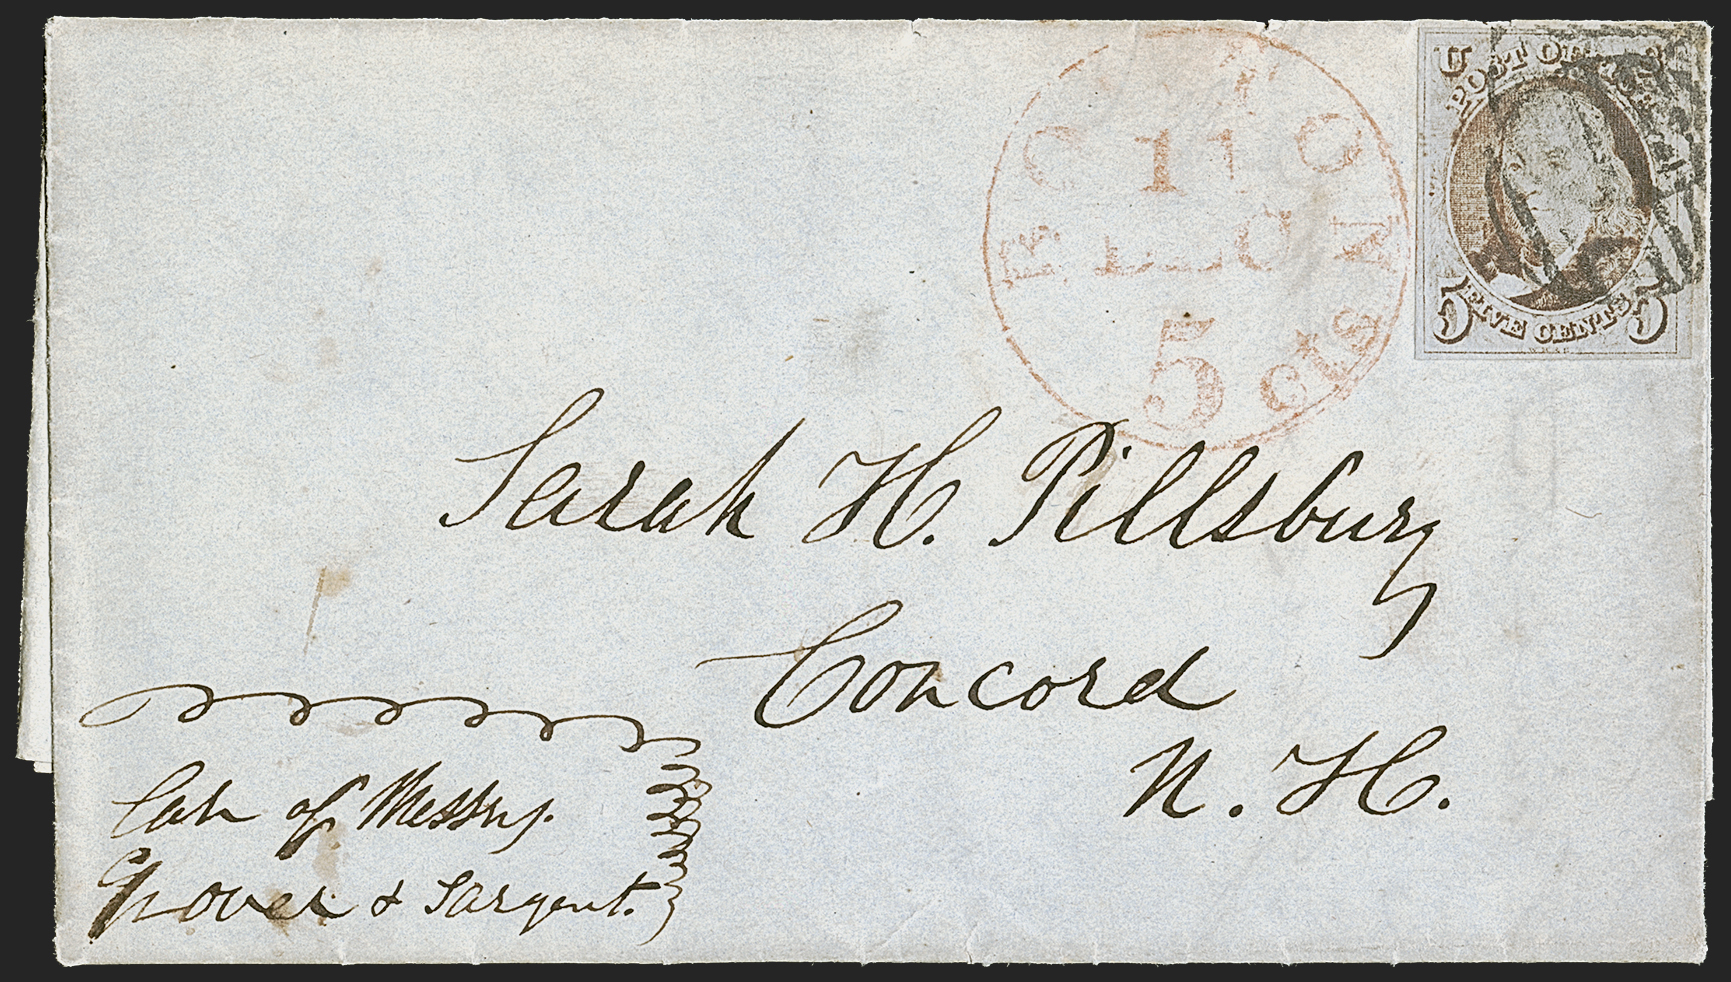 U
POST OFFICE
5 FIVE CENTS 5
11
DEC
5 cts
Sarah H. Pillsbury
Concord
N. H.
of Messrs.
Grover & Sargent.